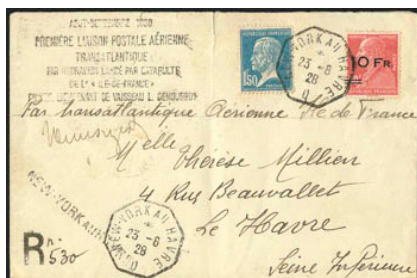 AOUT-SEPTEMBRE 1928
PREMIÈRE LIAISON POSTALE AÉRIENNE
TRANSATLANTIQUE
PAR HYDRAVION LANCÉ PAR CATAPULTE
DE L'"ILE-DE-FRANCE"
LIEUTENANT DE VAISSEAU L. DEMOUGEOT
1F50
10 FR.
NEW-YORK AU HAVRE
23-8
28
Par transatlantique Aérienne Ile de France
Demougeot
Melle
Thérèse Millien
4 Rue Beauvallet
Le Havre
Seine Inférieure
NEW-YORK AU H
NEW-YORK AU HAVRE
23-8
28
R n° 530